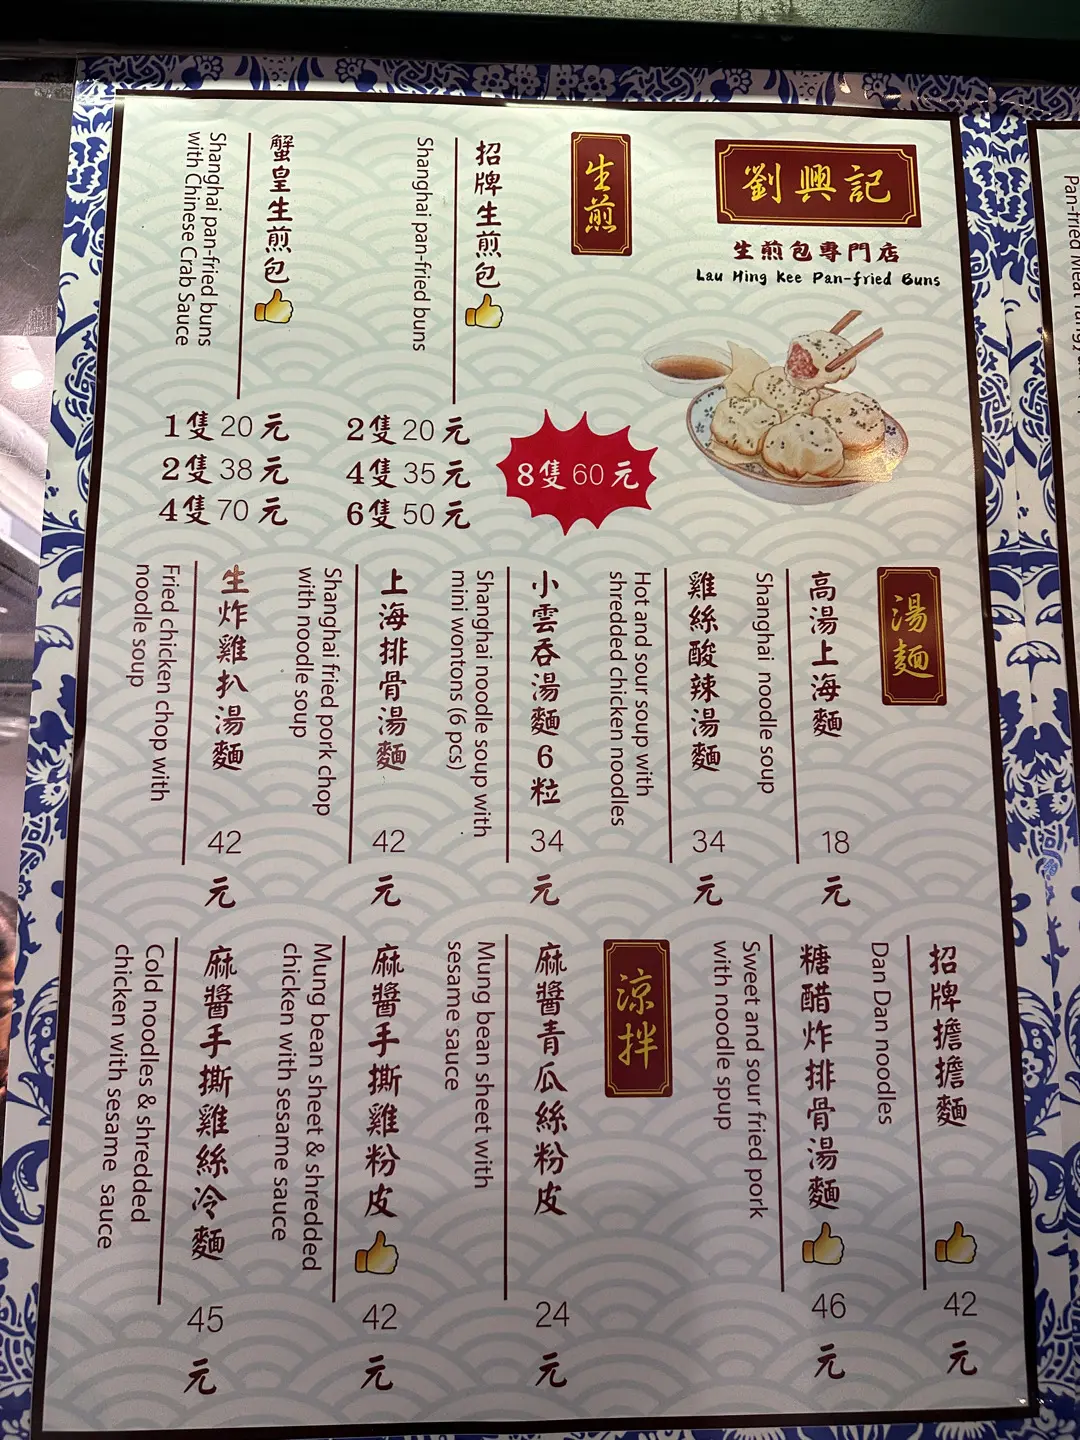 劉興記
生煎包專門店
Lau Hing Kee Pan-fried Buns
生煎
招牌生煎包
Shanghai pan-fried buns
2隻20元
4隻35元
6隻50元
8隻60元
蟹皇生煎包
Shanghai pan-fried buns
with Chinese Crab Sauce
1隻20元
2隻38元
4隻70元
湯麵
高湯上海麵
Shanghai noodle soup
18元
雞絲酸辣湯麵
Hot and sour soup with
shredded chicken noodles
34元
小雲吞湯麵6粒
Shanghai noodle soup with
mini wontons (6 pcs)
34元
上海排骨湯麵
Shanghai fried pork chop
with noodle soup
42元
生炸雞扒湯麵
Fried chicken chop with
noodle soup
42元
招牌擔擔麵
Dan Dan noodles
42元
糖醋炸排骨湯麵
Sweet and sour fried pork
with noodle spup
46元
涼拌
麻醬青瓜絲粉皮
Mung bean sheet with
sesame sauce
24元
麻醬手撕雞粉皮
Mung bean sheet & shredded
chicken with sesame sauce
42元
麻醬手撕雞絲冷麵
Cold noodles & shredded
chicken with sesame sauce
45元
Pan-fried Meat